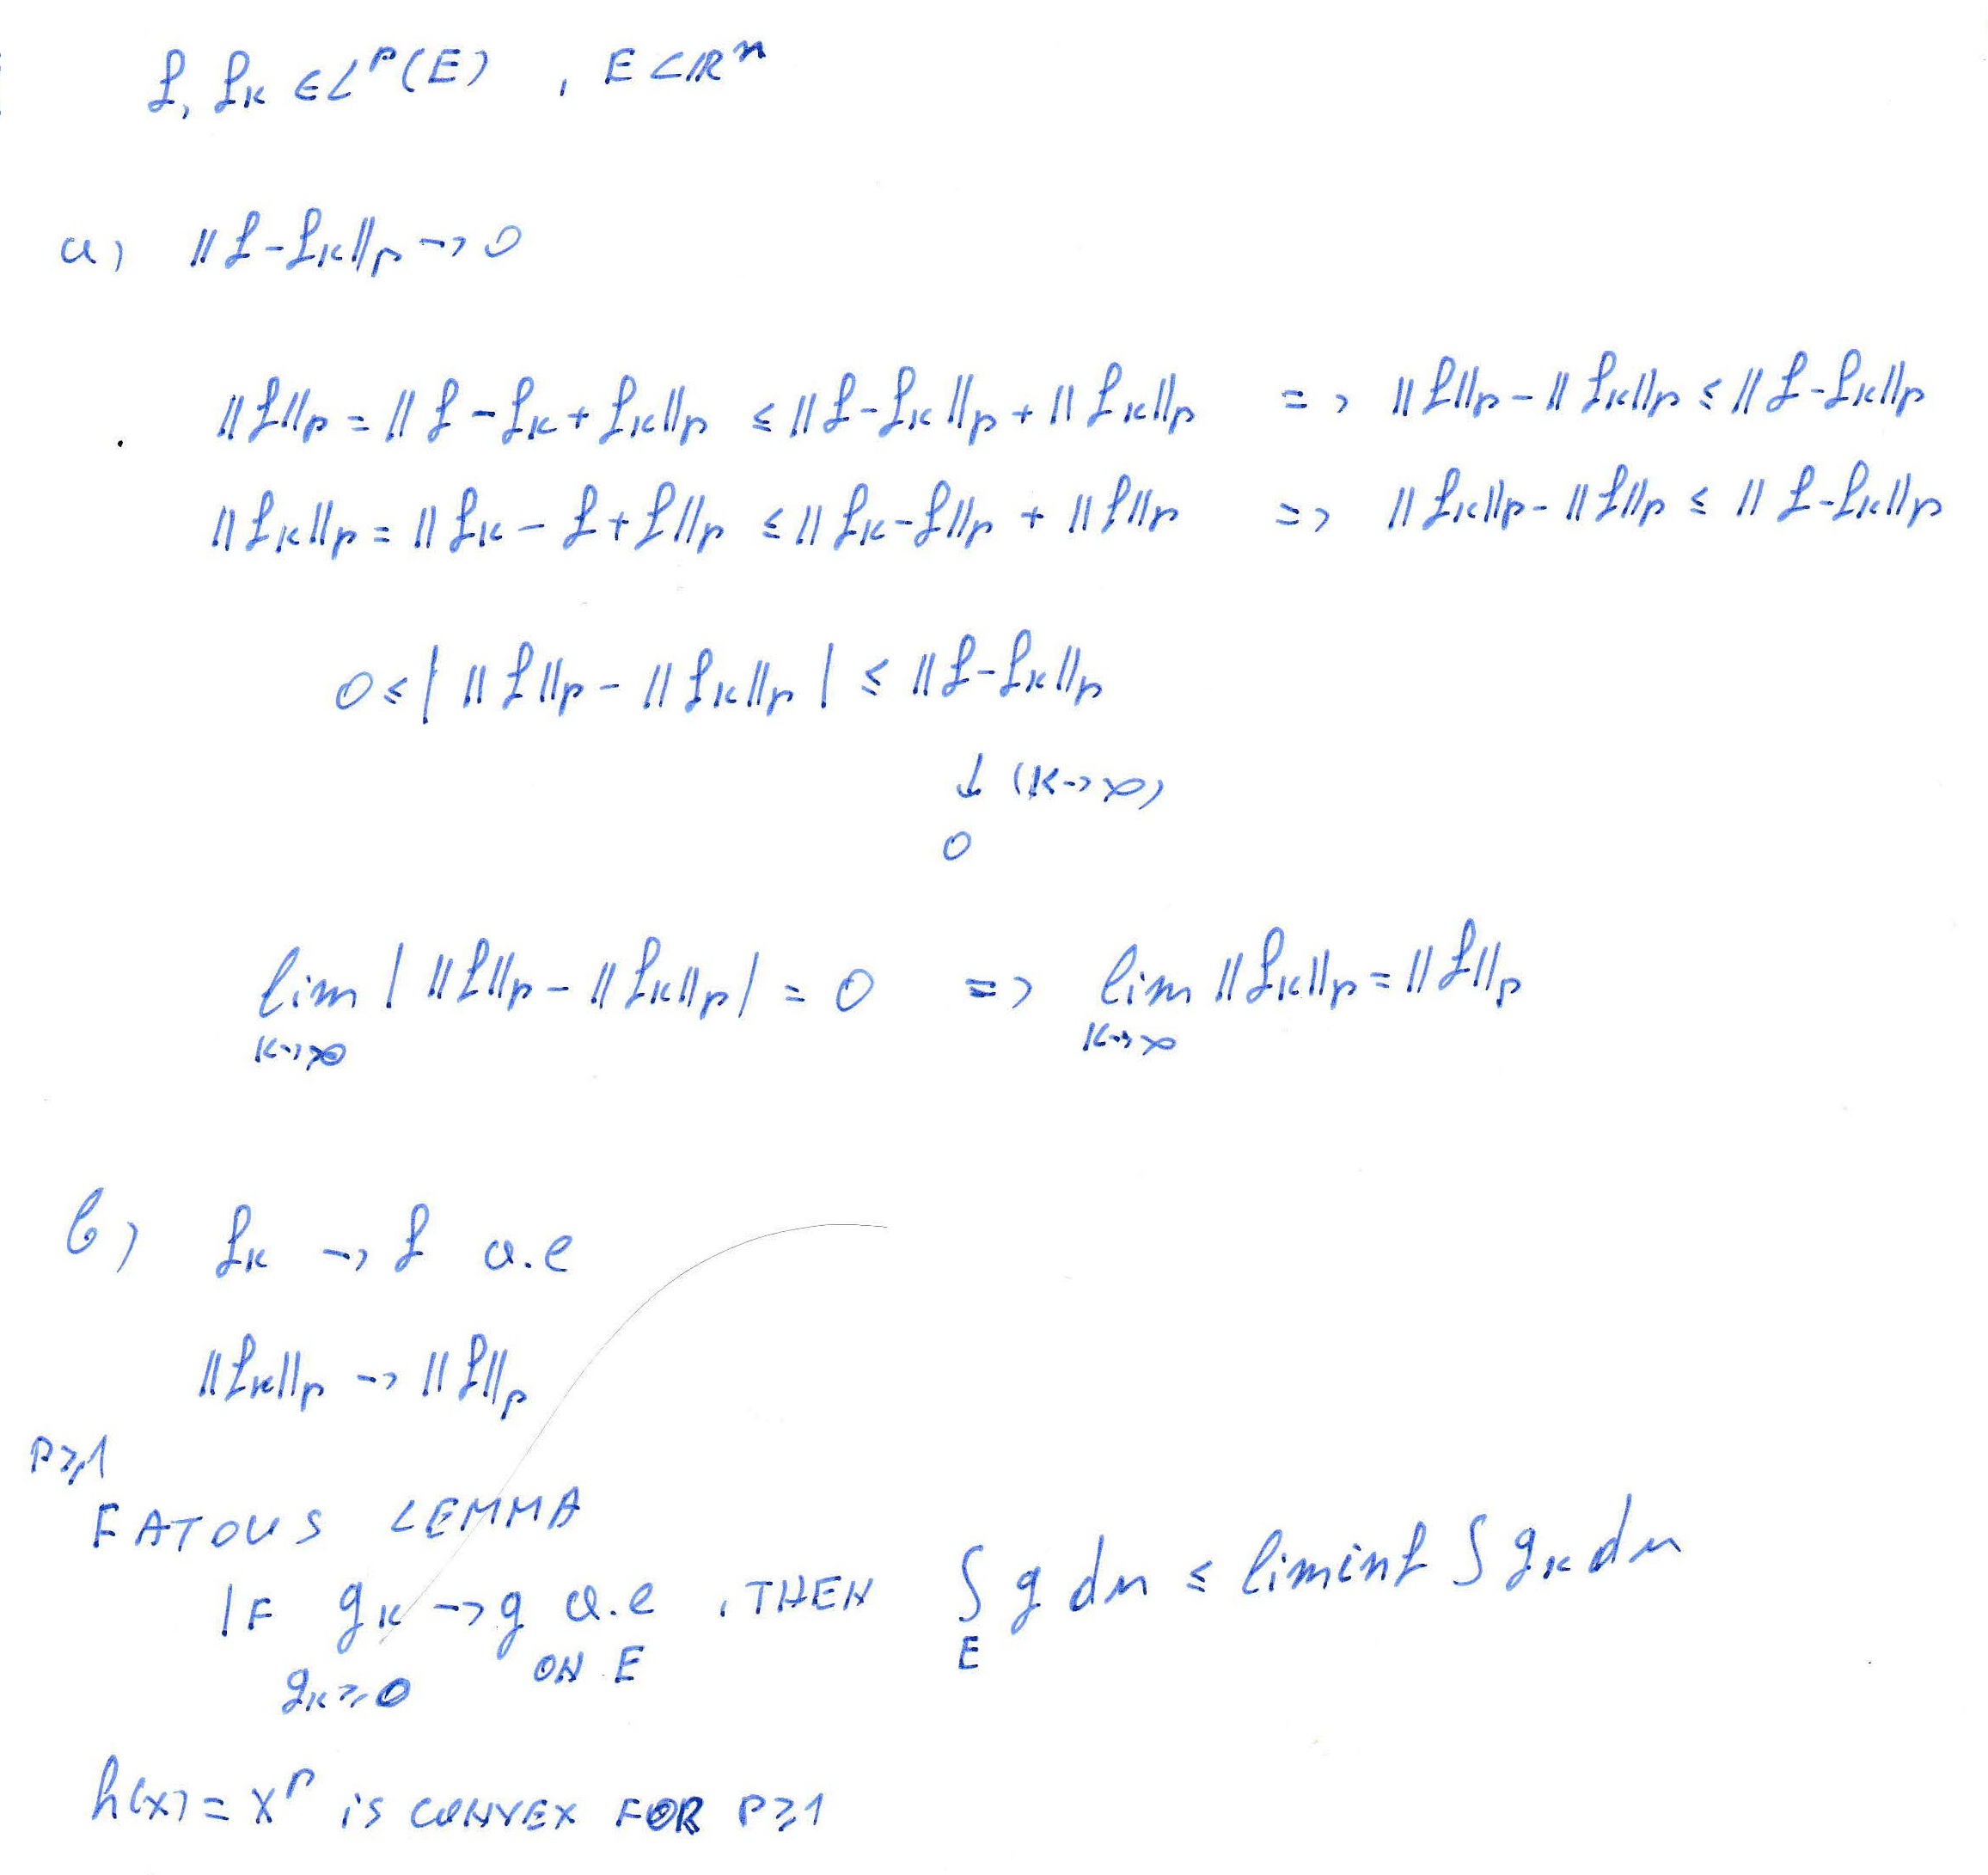 f, fₖ ∈ Lᵖ(E) , E ⊂ ℝⁿ
a) ‖f-fₖ‖ₚ → 0
‖f‖ₚ = ‖f - fₖ + fₖ‖ₚ ≤ ‖f-fₖ‖ₚ + ‖fₖ‖ₚ => ‖f‖ₚ - ‖fₖ‖ₚ ≤ ‖f-fₖ‖ₚ
‖fₖ‖ₚ = ‖fₖ - f + f‖ₚ ≤ ‖fₖ-f‖ₚ + ‖f‖ₚ => ‖fₖ‖ₚ - ‖f‖ₚ ≤ ‖f-fₖ‖ₚ
0 ≤ | ‖f‖ₚ - ‖fₖ‖ₚ | ≤ ‖f-fₖ‖ₚ
↓ (k→∞)
0
lim | ‖f‖ₚ - ‖fₖ‖ₚ | = 0 => lim ‖fₖ‖ₚ = ‖f‖ₚ
k→∞ k→∞
b) fₖ → f a.e
‖fₖ‖ₚ → ‖f‖ₚ
P≥1
FATOUS LEMMA
IF gₖ → g a.e , THEN ∫ g dμ ≤ liminf ∫ gₖ dμ
gₖ ≥ 0 ON E E
h(x) = xᵖ is CONVEX FOR P≥1